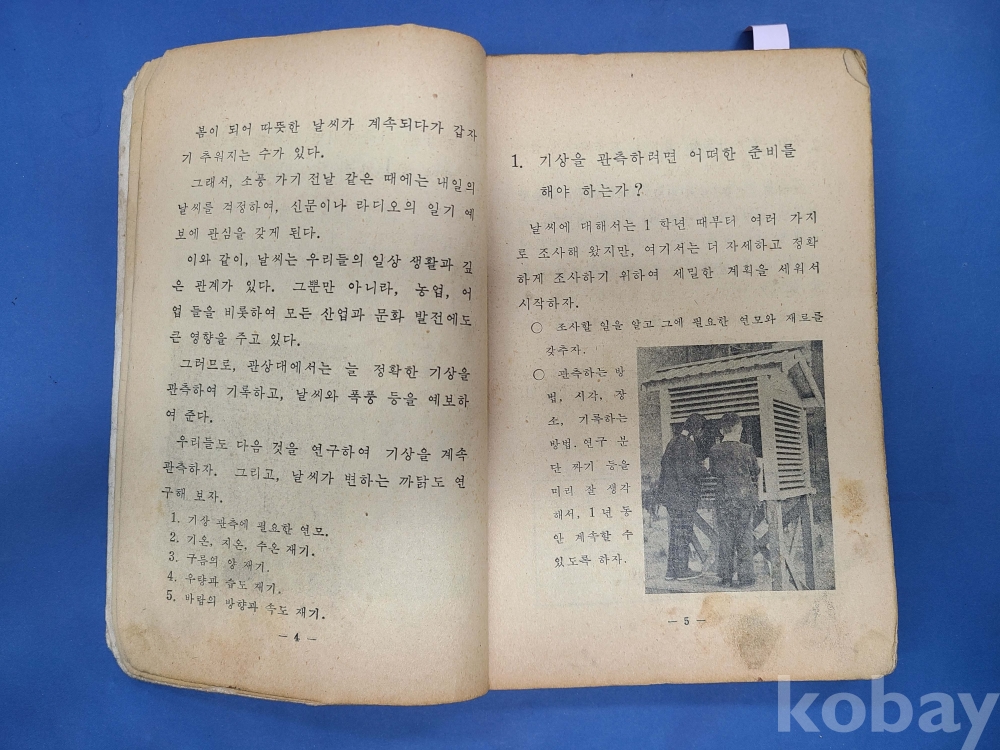 봄이 되어 따뜻한 날씨가 계속되다가 갑자
기 추워지는 수가 있다.
그래서, 소풍 가기 전날 같은 때에는 내일의
날씨를 걱정하여, 신문이나 라디오의 일기 예
보에 관심을 갖게 된다.
이와 같이, 날씨는 우리들의 일상 생활과 깊
은 관계가 있다. 그뿐만 아니라, 농업, 어
업 들을 비롯하여 모든 산업과 문화 발전에도
큰 영향을 주고 있다.
그러므로, 관상대에서는 늘 정확한 기상을
관측하여 기록하고, 날씨와 폭풍 등을 예보하
여 준다.
우리들도 다음 것을 연구하여 기상을 계속
관측하자. 그리고, 날씨가 변하는 까닭도 연
구해 보자.
1. 기상 관측에 필요한 연모.
2. 기온, 지온, 수온 재기.
3. 구름의 양 재기.
4. 우량과 습도 재기.
5. 바람의 방향과 속도 재기.
— 4 —
1. 기상을 관측하려면 어떠한 준비를
해야 하는가?
날씨에 대해서는 1 학년 때부터 여러 가지
로 조사해 왔지만, 여기서는 더 자세하고 정확
하게 조사하기 위하여 세밀한 계획을 세워서
시작하자.
○ 조사할 일을 알고 그에 필요한 연모와 재료를
갖추자.
○ 관측하는 방
법, 시각, 장
소, 기록하는
방법. 연구 분
단 짜기 등을
미리 잘 생각
해서, 1 년 동
안 계속할 수
있도록 하자.
— 5 —
kobay